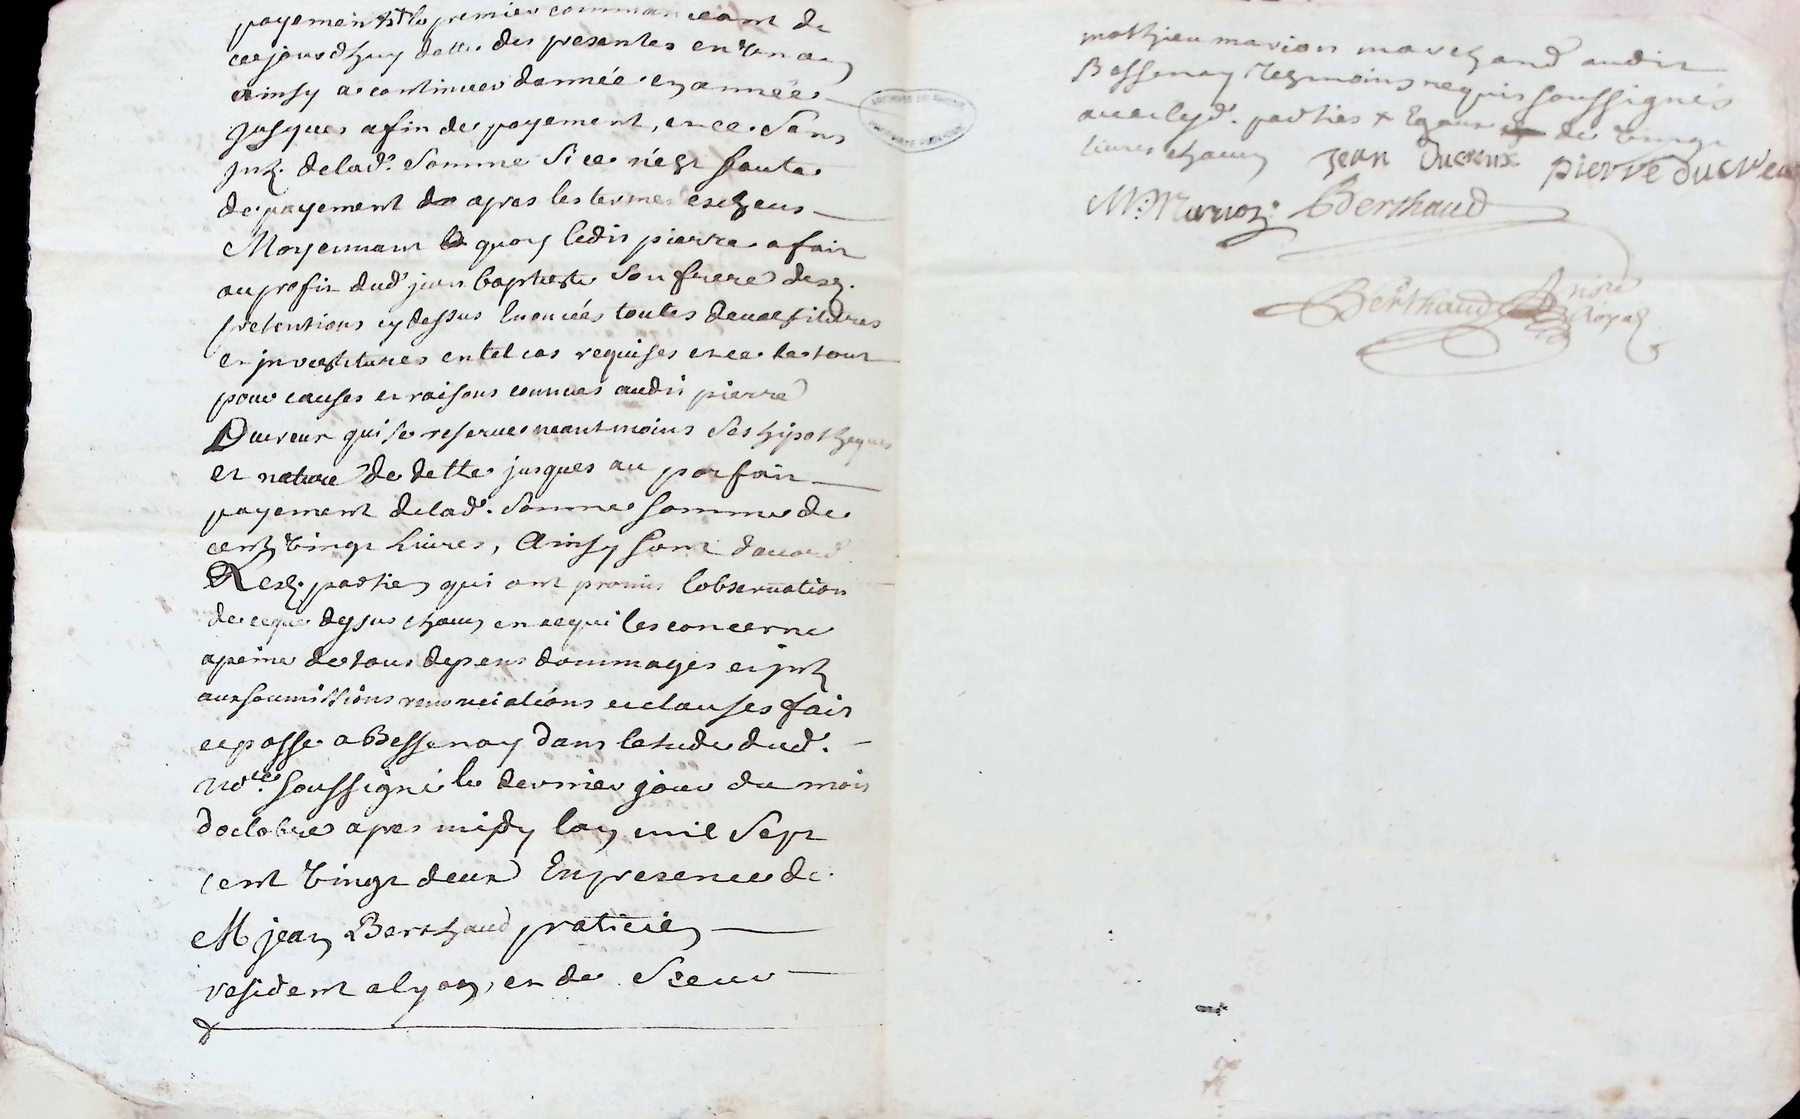 payement et le premier commanceant de
cejourdhuy datte des presentes en un an
ainsy a continuer dannée en année
jusques afin de payement, et ce sans
jnt. de lad. somme si ce n'est faute
de payement apres les termes escheus
Moyennant quoy ledit pierre a fait
au profit dud. jean baptiste son frere desd.
pretentions cy dessus enoncées toutes devestitures
et jnvestitures en tel cas requises et ce le tout
pour causes et raisons connues audit pierre
Ducreux qui se reserve neantmoins ses hipotheques
et nature de dette jusques au parfait
payement de lad. somme somme de
cent vingt livres, Ainsy sont d'accord
Lesd. parties qui ont promis lobservation
de ce que dessus chacun en ce qui les concerne
apeine de tous depens dommages et jnt
aux soumissions renonciations et clauses fait
et passé a Bessenay dans letude dud.
nore. soussigné le dernier jour du mois
doctobre apres midy lan mil sept
cent vingt deux En presence de
M jean Berthaud praticien
resident a lyon, et de sieur
mathieu marion marchand audit
Bessenay tesmoins requis soussignés
avec lesd. parties + de vingt
livres chacun jean Ducreux pierre ducreux
M. Marion Berthaud
Berthaud nore
Royal
ARCHIVES DU RHONE